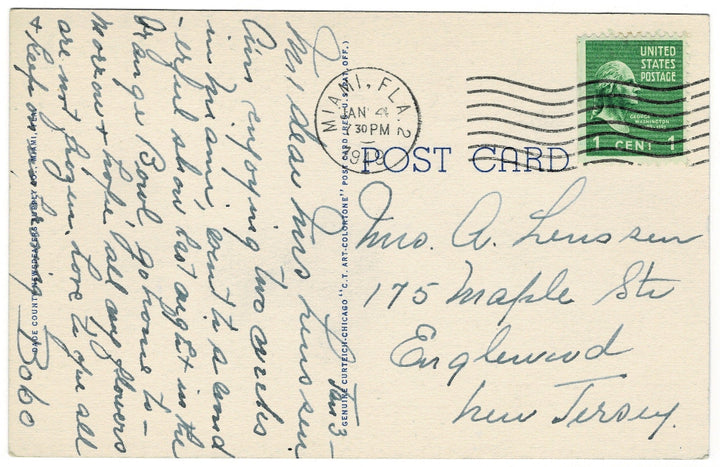 Jan 3 -
My dear Mrs Lenssen
Am enjoying two weeks
in Miami, went to a wond
-erful show last night in the
Orange Bowl, go home to-
morrow & hope all my flowers
are not frozen. Love to you all
& keep on
Bobo
DADE COUNTY NEWSDEALERS SUPPLY CO., MIAMI, FLA.
GENUINE CURTEICH-CHICAGO "C.T. ART-COLORTONE" POST CARD (REG. U.S. PAT. OFF.)
MIAMI, FLA. 2
JAN 4
30 PM
POST CARD
UNITED
STATES
POSTAGE
GEORGE
WASHINGTON
1 CENT 1
Mrs. A. Lenssen
175 Maple Str
Englewood
New Jersey.